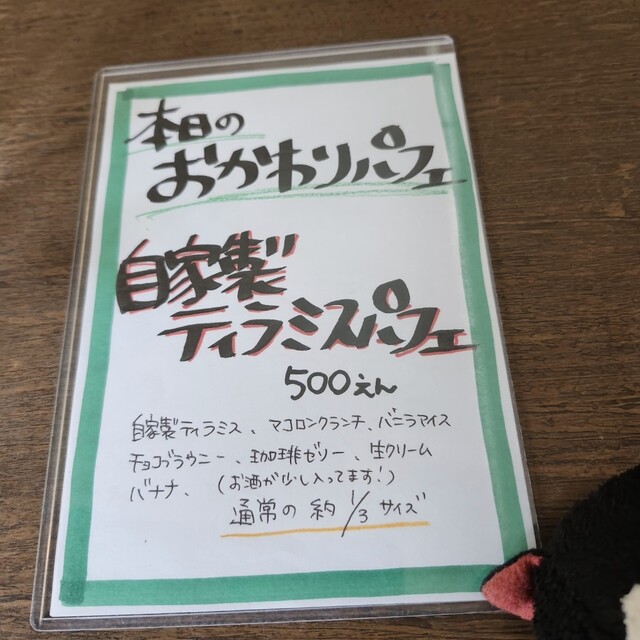 本日の
おかわりパフェ
自家製
ティラミスパフェ
500えん
自家製ティラミス、マコロンクランチ、バニラアイス
チョコブラウニー、珈琲ゼリー、生クリーム
バナナ、(お酒が少し入ってます!)
通常の約1/3サイズ